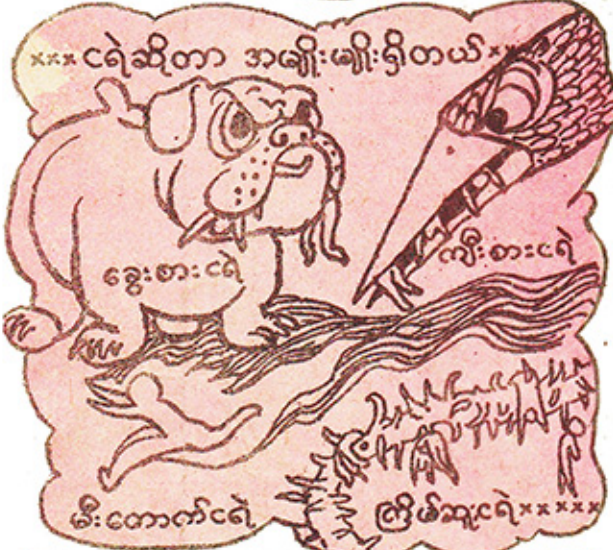 ××× ငရဲဆိုတာ အမျိုးမျိုးရှိတယ် ××
ခွေးစားငရဲ
ကျီးစားငရဲ
မီးတောက်ငရဲ
ကြိမ်ဆူးငရဲ ×××××